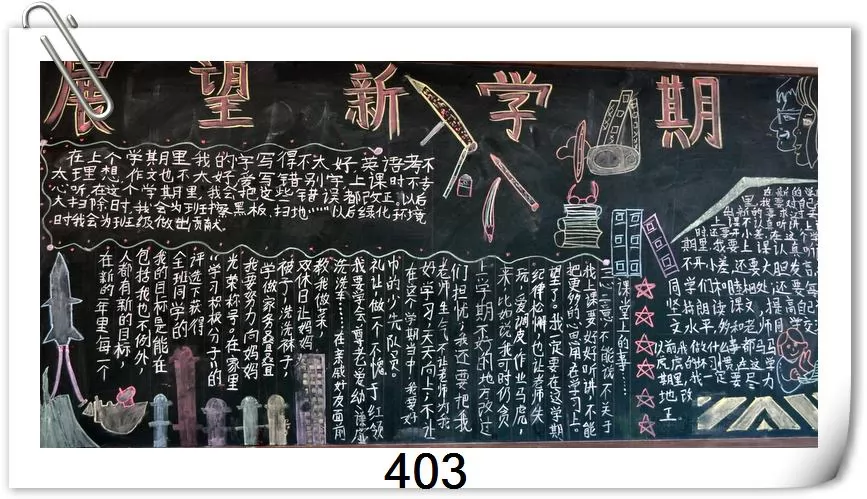 展望新学期
在上个学期里我的字写得不太好英语考不
太理想.作文也不太好爱写错别字上课时不专
心听.在这个学期里我会把这些错误都改正.以后
大扫除时.我会为班擦黑板.扫地……以后绿化环境
时我会为班级做出贡献.
在新的一年里每一个
人都有新的目标,
包括我也不例外,
我的目标是能在
全班同学的
评选下获得
“学习积极分子”的
光荣称号。在家里
我要努力向妈妈
学做家务叠叠
被子,洗洗袜子,
双休日让妈妈
教我做菜,
洗洗车……在亲戚好友面前
我要学会尊老爱幼谦虚
礼让做个不愧于红领
巾的少先队员。
在这个学期当中,我要好
好学习,天天向上;不让
老师生气,不让老师为我
们担忧,我还要把我
上学期不好的地方改过
来,比如说:我可时仍贪
玩,爱调皮,作业马虎,
纪律松懈,也让老师失
望了。我一定要在这学期
把更多的心思用在学习上。
我上课要好好听讲,不能
三心二意,不能说不关于
课堂上的事……
上课不认真听讲上
时还要开小差.这
期里.我要上课认真听
不开小差.还要大胆发言
同学们大胆相处.还要每
坚持朗读课文,提高自己
文水平,多和老师同学交
以前我做什么事都马马
虎虎的坏习惯在这学
期里,我一定要尽力
地改
正
403